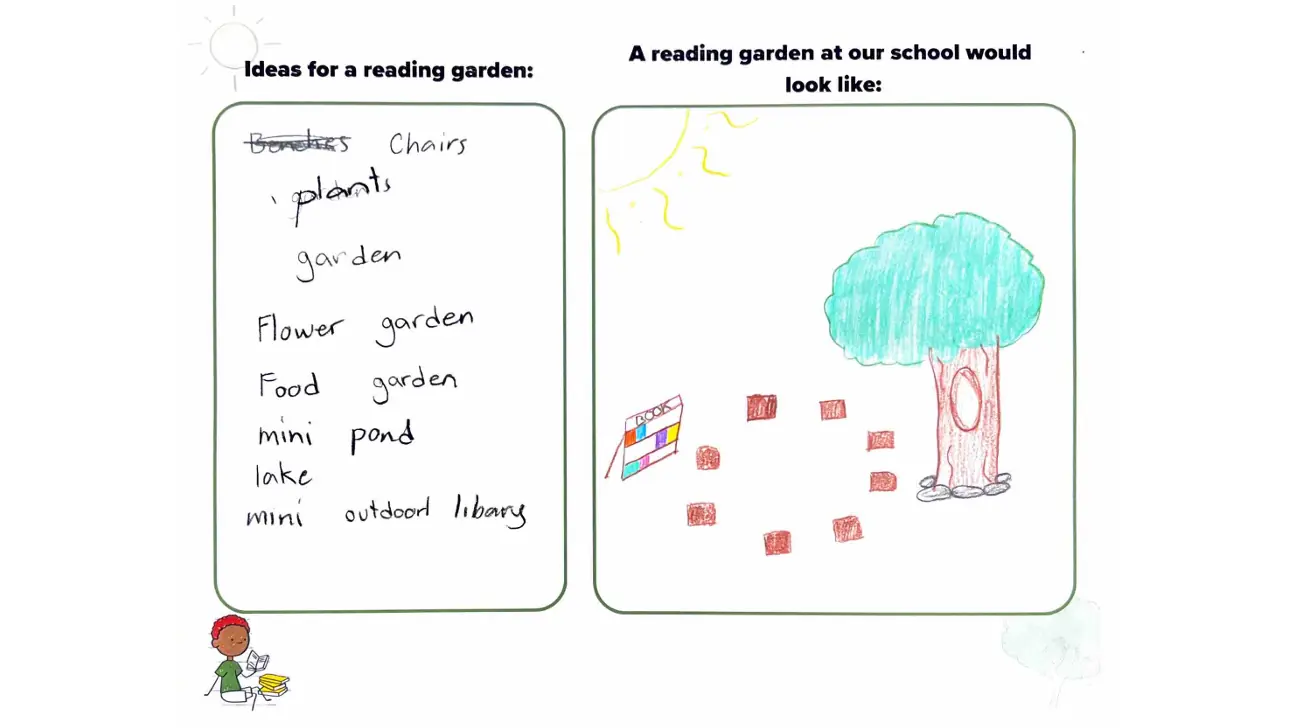 Ideas for a reading garden:
Benches Chairs
plants
garden
Flower garden
Food garden
mini pond
lake
mini outdoorl libary
A reading garden at our school would
look like:
BOOK